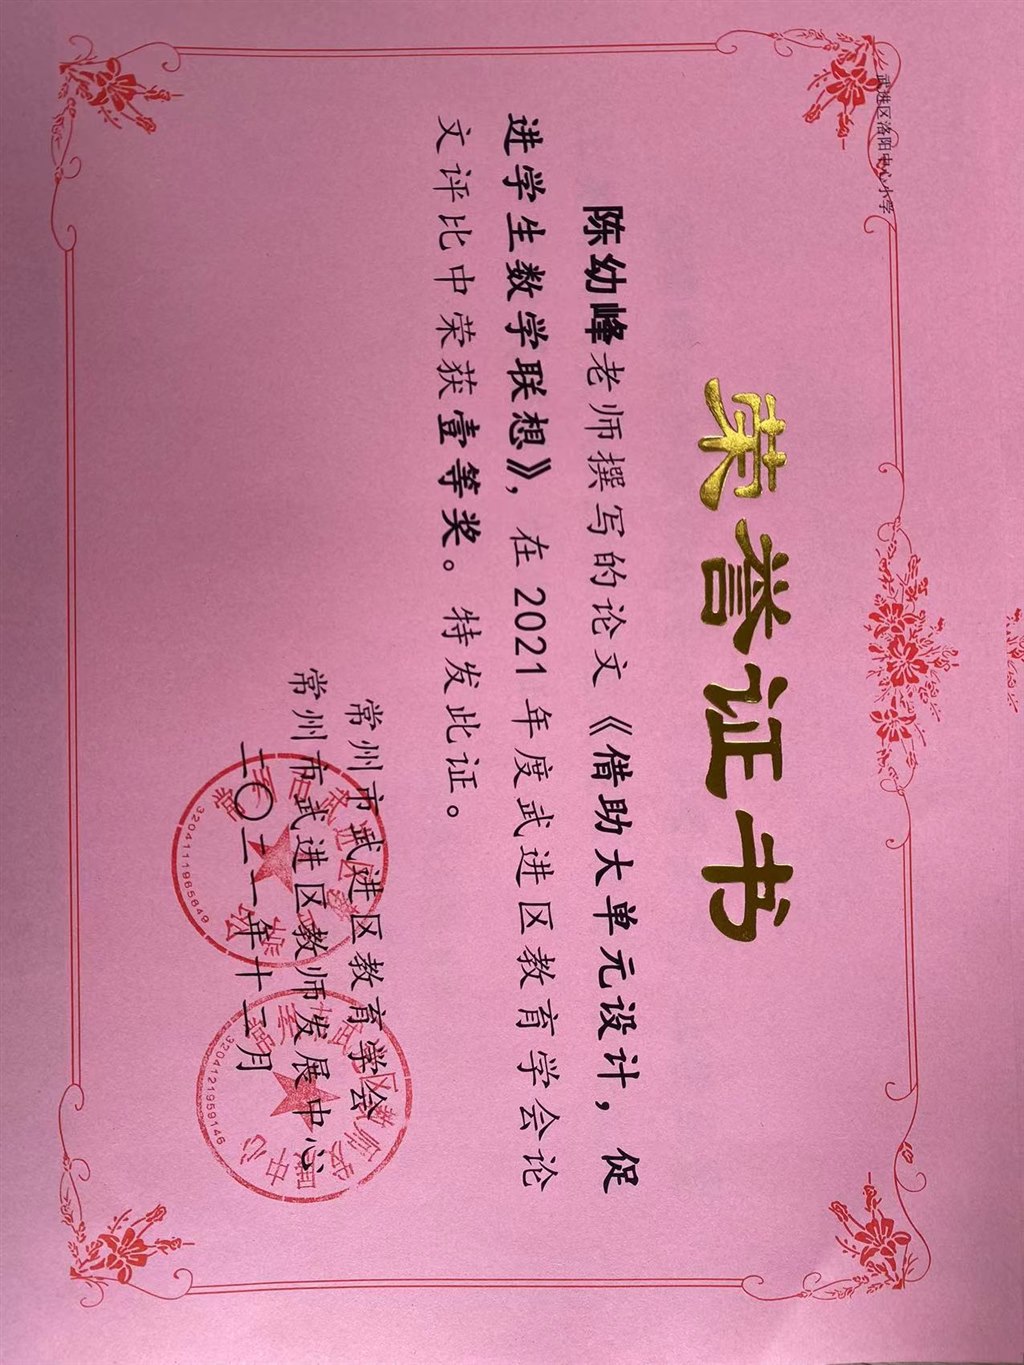 武进区洛阳中心小学
荣誉证书
陈幼峰老师撰写的论文《借助大单元设计，促
进学生数学联想》，在2021年度武进区教育学会论
文评比中荣获壹等奖。特发此证。
常州市武进区教育学会
常州市武进区教师发展中心
二〇二一年十二月
3204111965849
3204121959146